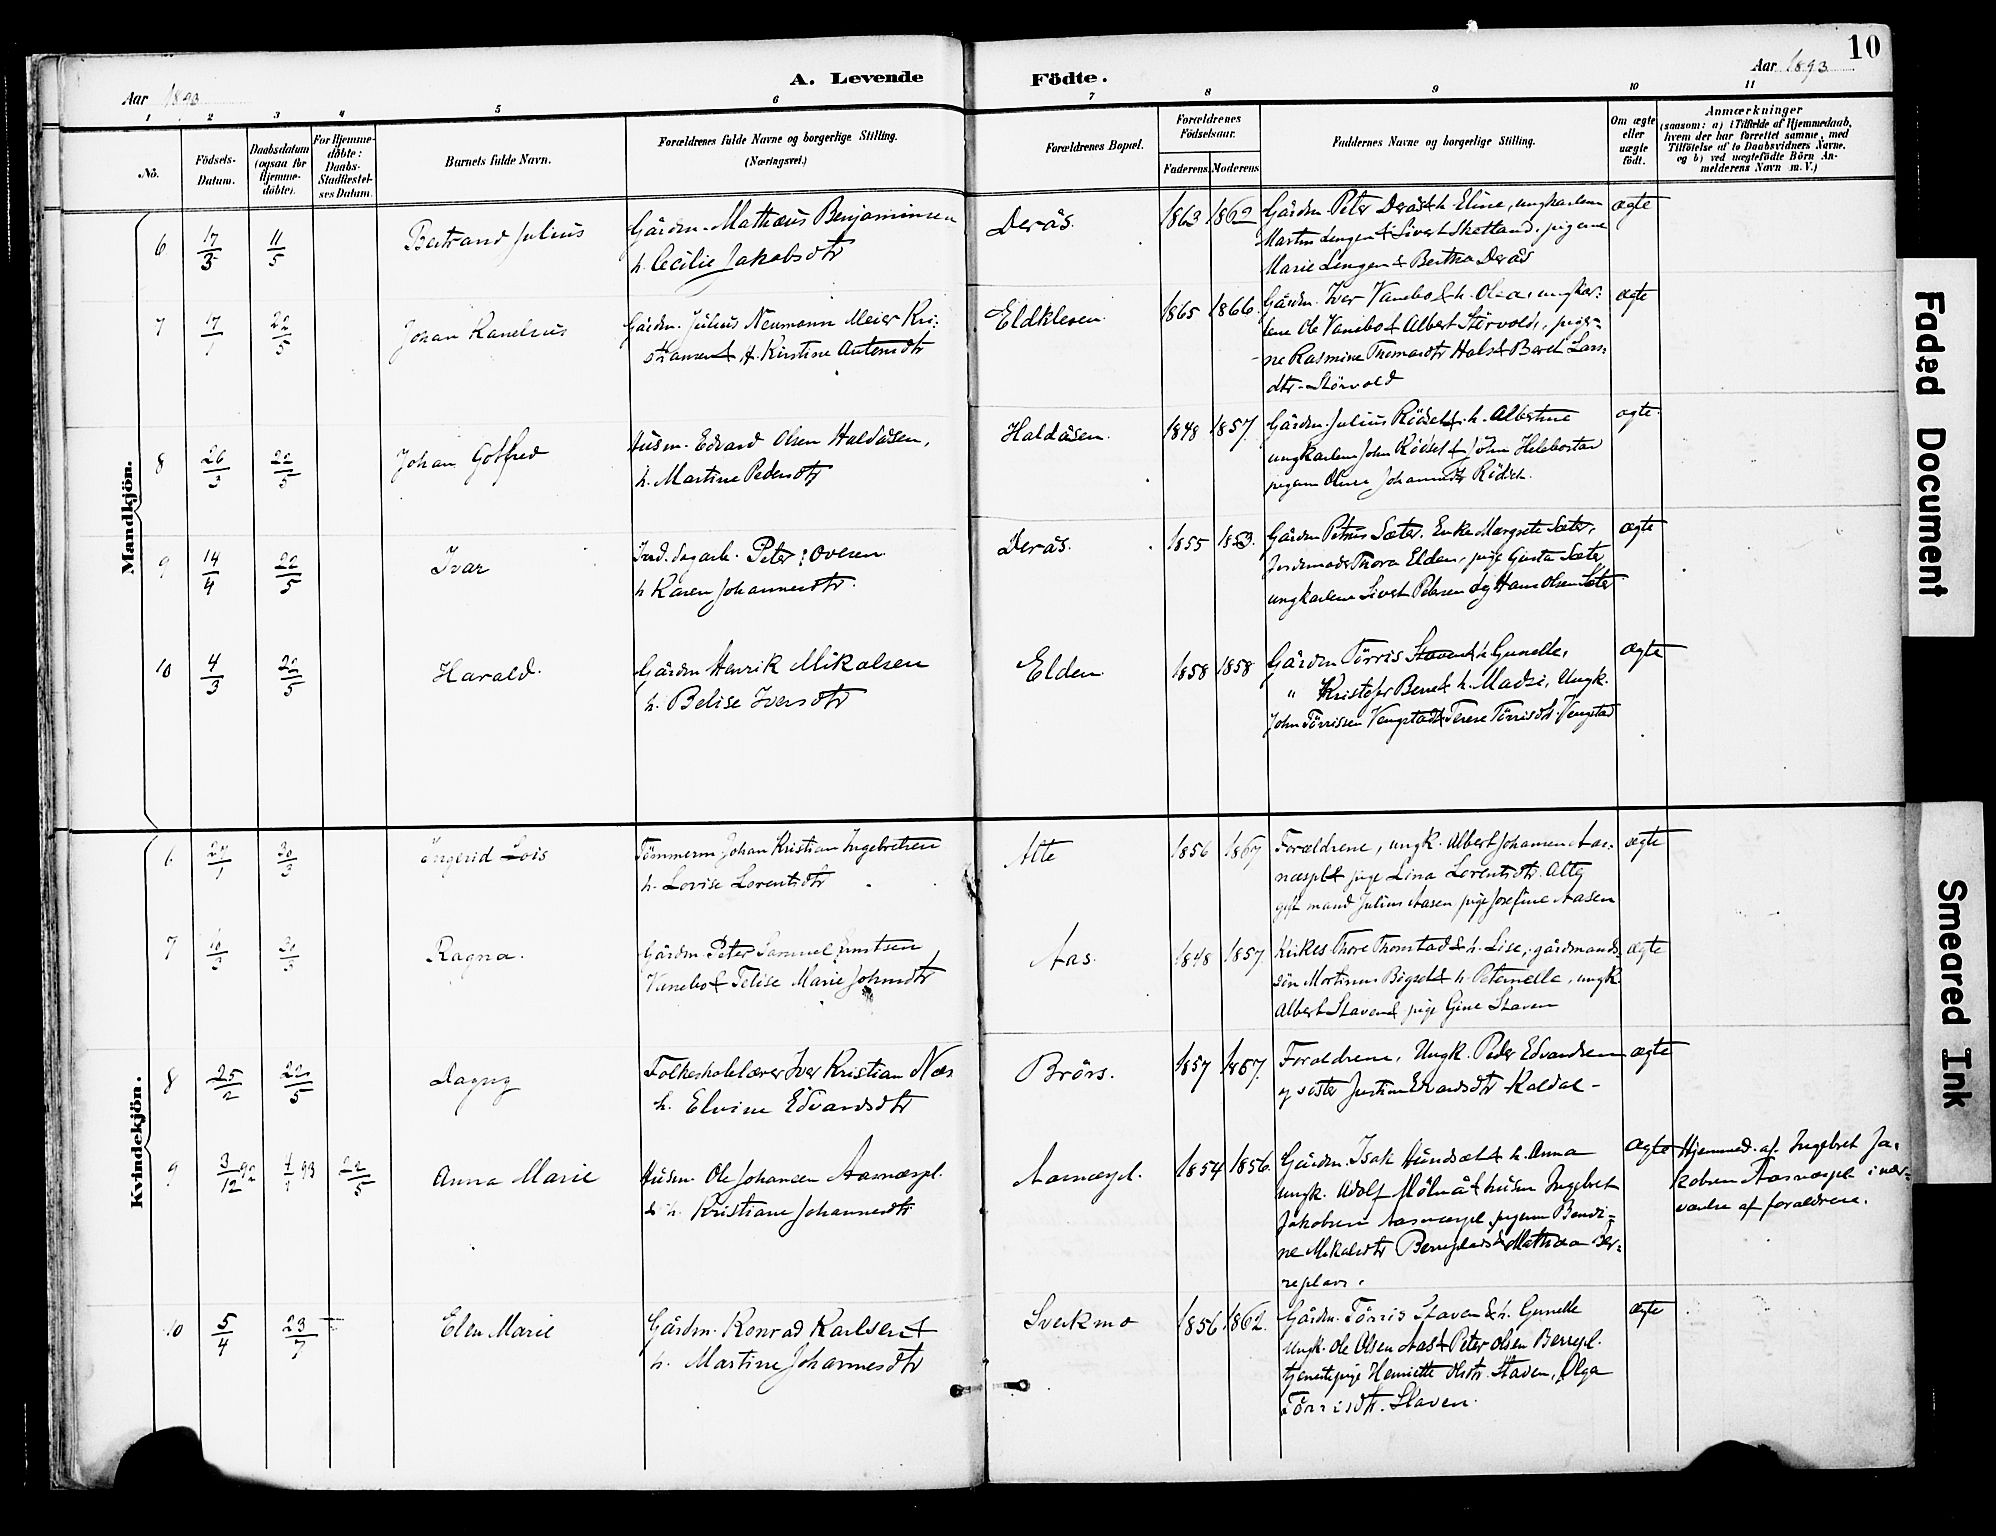 10
A. Levende Födte.
Aar 1893
Aar 1893
1 2 3 4 5 6 7 8 9 10 11
No.
Födsels-
Datum.
Daabsdatum
(ogsaa for
Hjemme-
döbte).
For Hjemme-
döbte:
Daabs-
Stadfæstel-
ses Datum.
Barnets fulde Navn.
Forældrenes fulde Navne og borgerlige Stilling.
(Næringsvei.)
Forældrenes Bopæl.
Forældrenes
Födselsaar.
Faderens. Moderens.
Faddernes Navne og borgerlige Stilling.
Om ægte
eller
uægte
födt.
Anmærkninger
(saasom: a) i Tilfælde af Hjemmedaab,
hvem der har forrettet samme, med
Tilföielse af to Daabsvidners Navne,
og b) ved uægtefödte Börn An-
melderens Navn m. V.)
Mandkjön.
6 17/3 11/5 Bertrand Julius
Gårdm. Mathæus Benjaminsen
h. Cecilie Jakobsdtr
Derås. 1863 1862
Gårdm. Peter Derås & h. Eline, ungkarlene
Martin Lengen & Sivert Skotland, pigerne
Marie Lengen & Bertha Derås
ægte
7 17 22/5 Johan Kanelius
Gårdm. Julius Neumann Meier Kri-
stiansen & h. Kirstine Antonsdtr
Eldkleven 1865 1866
Gårdm. Iver Vanebo & h. Olea, ungkar-
lene Ole Vanebo & Albert Störvold, piger-
ne Rasmine Thomasdtr Hals & Beret Lars-
dtr. Störvold
ægte
8 26/3 22/5 Johan Gotfred
Husm. Edvard Olsen Haldåsen,
h. Martine Pedersdtr
Haldåsen. 1848 1857
Gårdm. Julius Rödset & h. Albertine
ungkarlene John Rödset & John Helebostad
pigerne Oline Johannesdtr Rödset.
ægte
9 14/4 22/5 Ivar
Ind. dagarb. Peter Ovesen
h Karen Johannesdtr.
Derås. 1855 1853.
Gårdm Petrus Sæter, Enke Margrete Sæter,
Jordemoder Thora Elden, pige Gusta Sæter
ungkarlene Sivert Petersen og Hans Olsen Sæter
ægte
10 4/3 22/5 Harald.
Gårdm Henrik Mikalsen
h. Belise Iversdtr
Elden 1858 1858
Gårdm Törris Staven & h Gunelle,
" Kristofer Berre & h. Madsi, Ungk.
John Törrissen Vengstad & Terese Törrisdtr. Vengstad
ægte
Kvindekjön.
6. 29/1 30/3 Ingerid Lois
Tömmerm. Johan Kristian Ingebretsen
h. Lovise Lorentsdtr
Alte 1856 1867
Forældrene, ungk. Albert Johansen Aas-
næspl & pige Lina Lorentsdtr. Alte
gift mand Julius Aasen pige Josefine Aasen
ægte
7 10/3 30/3 Ragna.
Gårdm. Peter Samuel Arntsen
Vanebo & Felise Marie Johnsdtr
Aas. 1848 1857
Kirkes. Thore Thonstad & h. Lise, gårdmands-
sön Mortinus Bögset & h. Peternelle, ungk.
Albert Staven & pige Gine Staven
ægte
8 25/2 22/5 Dagny
Folkeskolelærer Iver Kristian Næs
h. Elvine Edvardsdtr
Brörs. 1857 1867.
Forældrene, Ungk. Peder Edvardsen
og söster Justine Edvardsdtr Kaldal-
ægte
9 3/12 92 4 93 22/5 Anna Marie
Husm. Ole Johansen Aasnæspl.
& h. Kristiane Johannesdtr
Aasnæspl. 1854 1856.
Gårdm. Isak Hundsæt & h. Anna
ungk. Adolf Mölnå & husm Ingebret
Jakobsen Aasnæspl. pigerne Bendi-
ne Mikalsdtr Berreplads & Mathea Ber-
replads.
ægte
Hjemmed. af Ingebret Ja-
kobsen Aasnæspl. i nær-
værelse af forældrene.
10 5/4 23/7 Elen Marie
Gårdm. Konrad Karlsen &
h. Martine Johannesdtr
Sverkmo 1856 1862.
Gårdm. Törris Staven & h. Gunelle
Ungk. Ole Olsen Aas & Peter Olsen Berrepl.
tjenestepige Henriette Olsdtr. Staven, Olga
Törrisdtr. Staven.
ægte
Faded Document
Smeared Ink